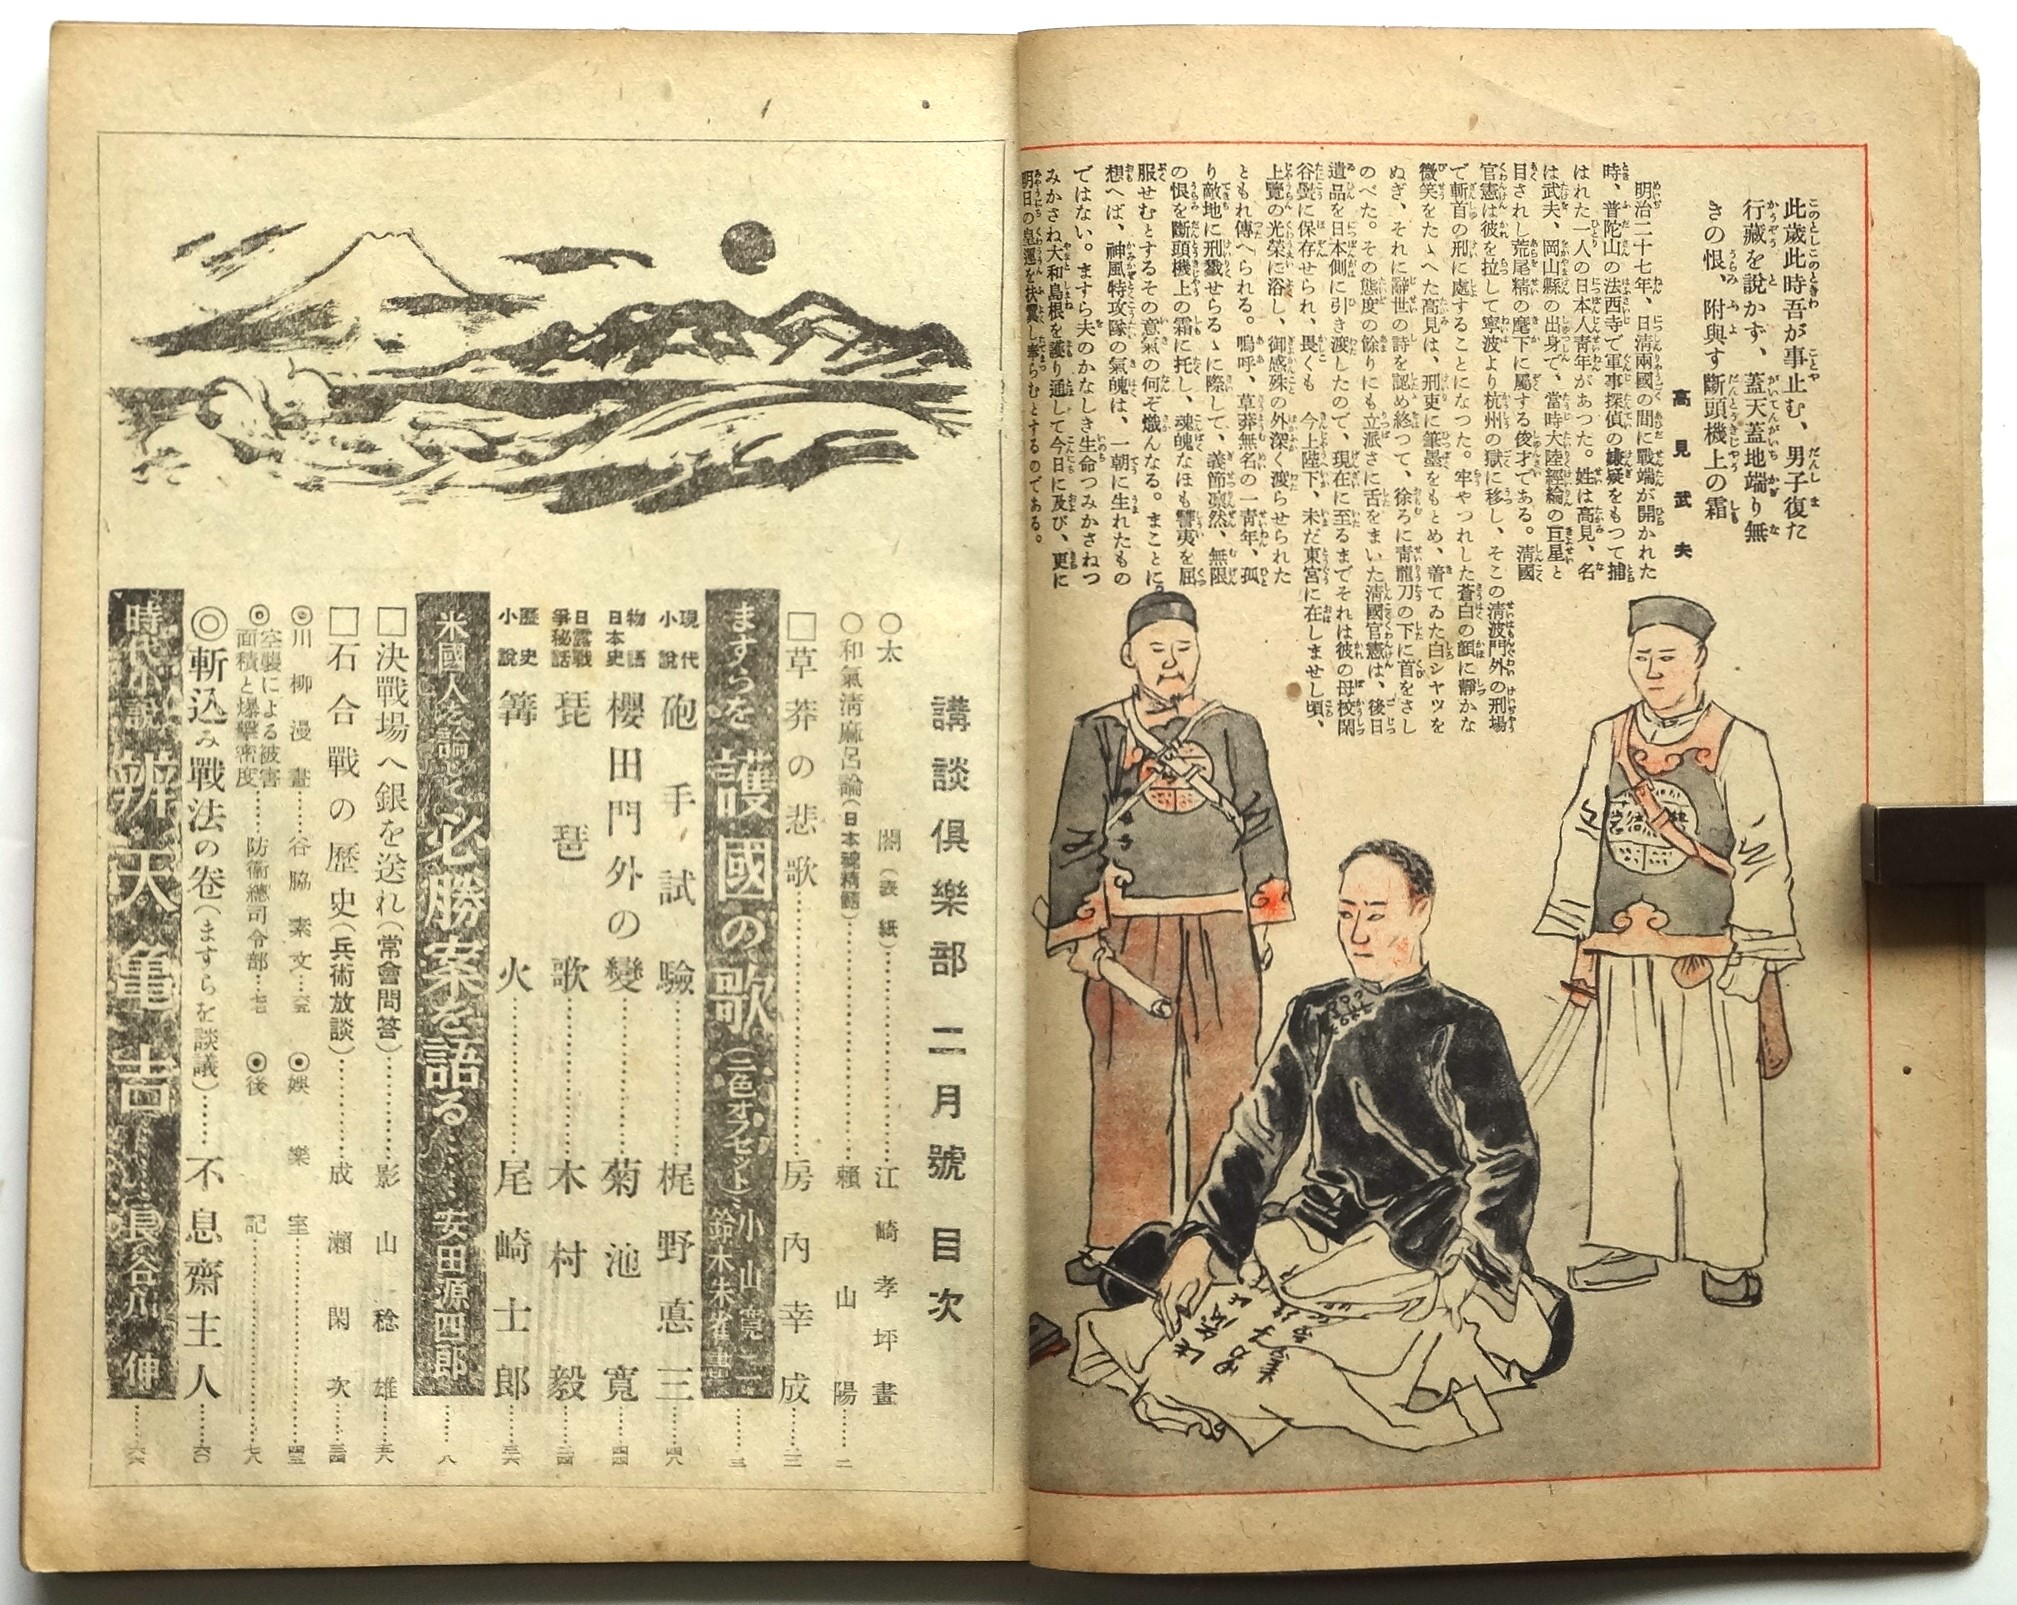 此歲此時吾が事止む、男子復た
行藏を說かず、蓋天蓋地端り無
きの恨、附與す斷頭機上の霜
高見武夫
明治二十七年、日淸兩國の間に戰端が開かれた
時、普陀山の法西寺で軍事探偵の嫌疑をもつて捕
はれた一人の日本人靑年があつた。姓は高見、名
は武夫、岡山縣の出身で、當時大陸經綸の巨星と
目されし荒尾精の麾下に屬する俊才である。淸國
官憲は彼を拉して寧波より杭州の獄に移し、そこの淸波門外の刑場
で斬首の刑に處することになつた。牢やつれした蒼白の顏に靜かな
微笑をたゝへた高見は、刑吏に筆墨をもとめ、着てゐた白シャツを
ぬぎ、それに辭世の詩を認め終つて、徐ろに靑龍刀の下に首をさし
のべた。その態度の餘りにも立派さに舌をまいた淸國官憲は、後日
遺品を日本側に引き渡したので、現在に至るまでそれは彼の母校閑
谷黌に保存せられ、畏くも　今上陛下、未だ東宮に在しませし頃、
上覽の光榮に浴し、御感殊の外深く渡らせられた
ともれ傳へられる。嗚呼、草莽無名の一靑年、孤
り敵地に刑戮せらるゝに際して、義節凛然、無限
の恨を斷頭機上の霜に托し、魂魄なほも讐夷を屈
服せむとするその意氣の何ぞ熾んなる。まことに
想へば、神風特攻隊の氣魄は、一朝に生れたもの
ではない。ますら夫のかなしき生命つみかさねつ
みかさね大和島根を護り通して今日に及び、更に
明日の皇運を扶翼し奉らむとするのである。
講談俱樂部　二月號　目次
○太　閤（表紙）……江崎孝坪畫
○和氣淸麻呂論（日本魂精髓）……賴山陽……二
□草莽の悲歌……房內幸成……三
ますらを護國の歌（二色オフセット）…小山寬二 鈴木朱雀畫……三
現代小說　砲手試驗……梶野悳三……四八
物語日本史　櫻田門外の變……菊池寬……四四
日露戰爭秘話　琵琶歌……木村毅……二四
歷史小說　篝火……尾崎士郎……三六
米國人を論じて必勝案を語る……安田源四郎……八
□決戰場へ銀を送れ（常會問答）……影山稔雄……五八
□石合戰の歷史（兵術放談）……成瀨閑次……三四
◎川柳漫畫……谷脇素文…　◎娛樂室……四三
◎空襲による被害面積と爆擊密度……防衞總司令部…七　◎後記……七八
◎斬込み戰法の卷（ますらを談議）……不息齋主人……六〇
時代小說　辨天龜吉……長谷川伸……六六